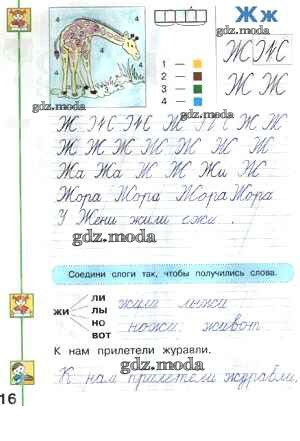 Ж ж
4 4
4 4
gdz.moda
1 —
2 —
3 —
4 —
Ж Ж
Ж Ж
gdz.moda
Ж Ж Ж Ж Ж Ж
Ж Ж Ж Ж Ж Ж Ж
Жа Жа Ж Ж Жи Ж
Жора Жора Жора Жора
У Жени жили ежи.
gdz.moda
Соедини слоги так, чтобы получились слова.
ЖИ
ЛИ
ЛЫ
НО
ВОТ
жили лыжи
ножи живот
К нам прилетели журавли.
gdz.moda
К нам прилетели журавли.
16